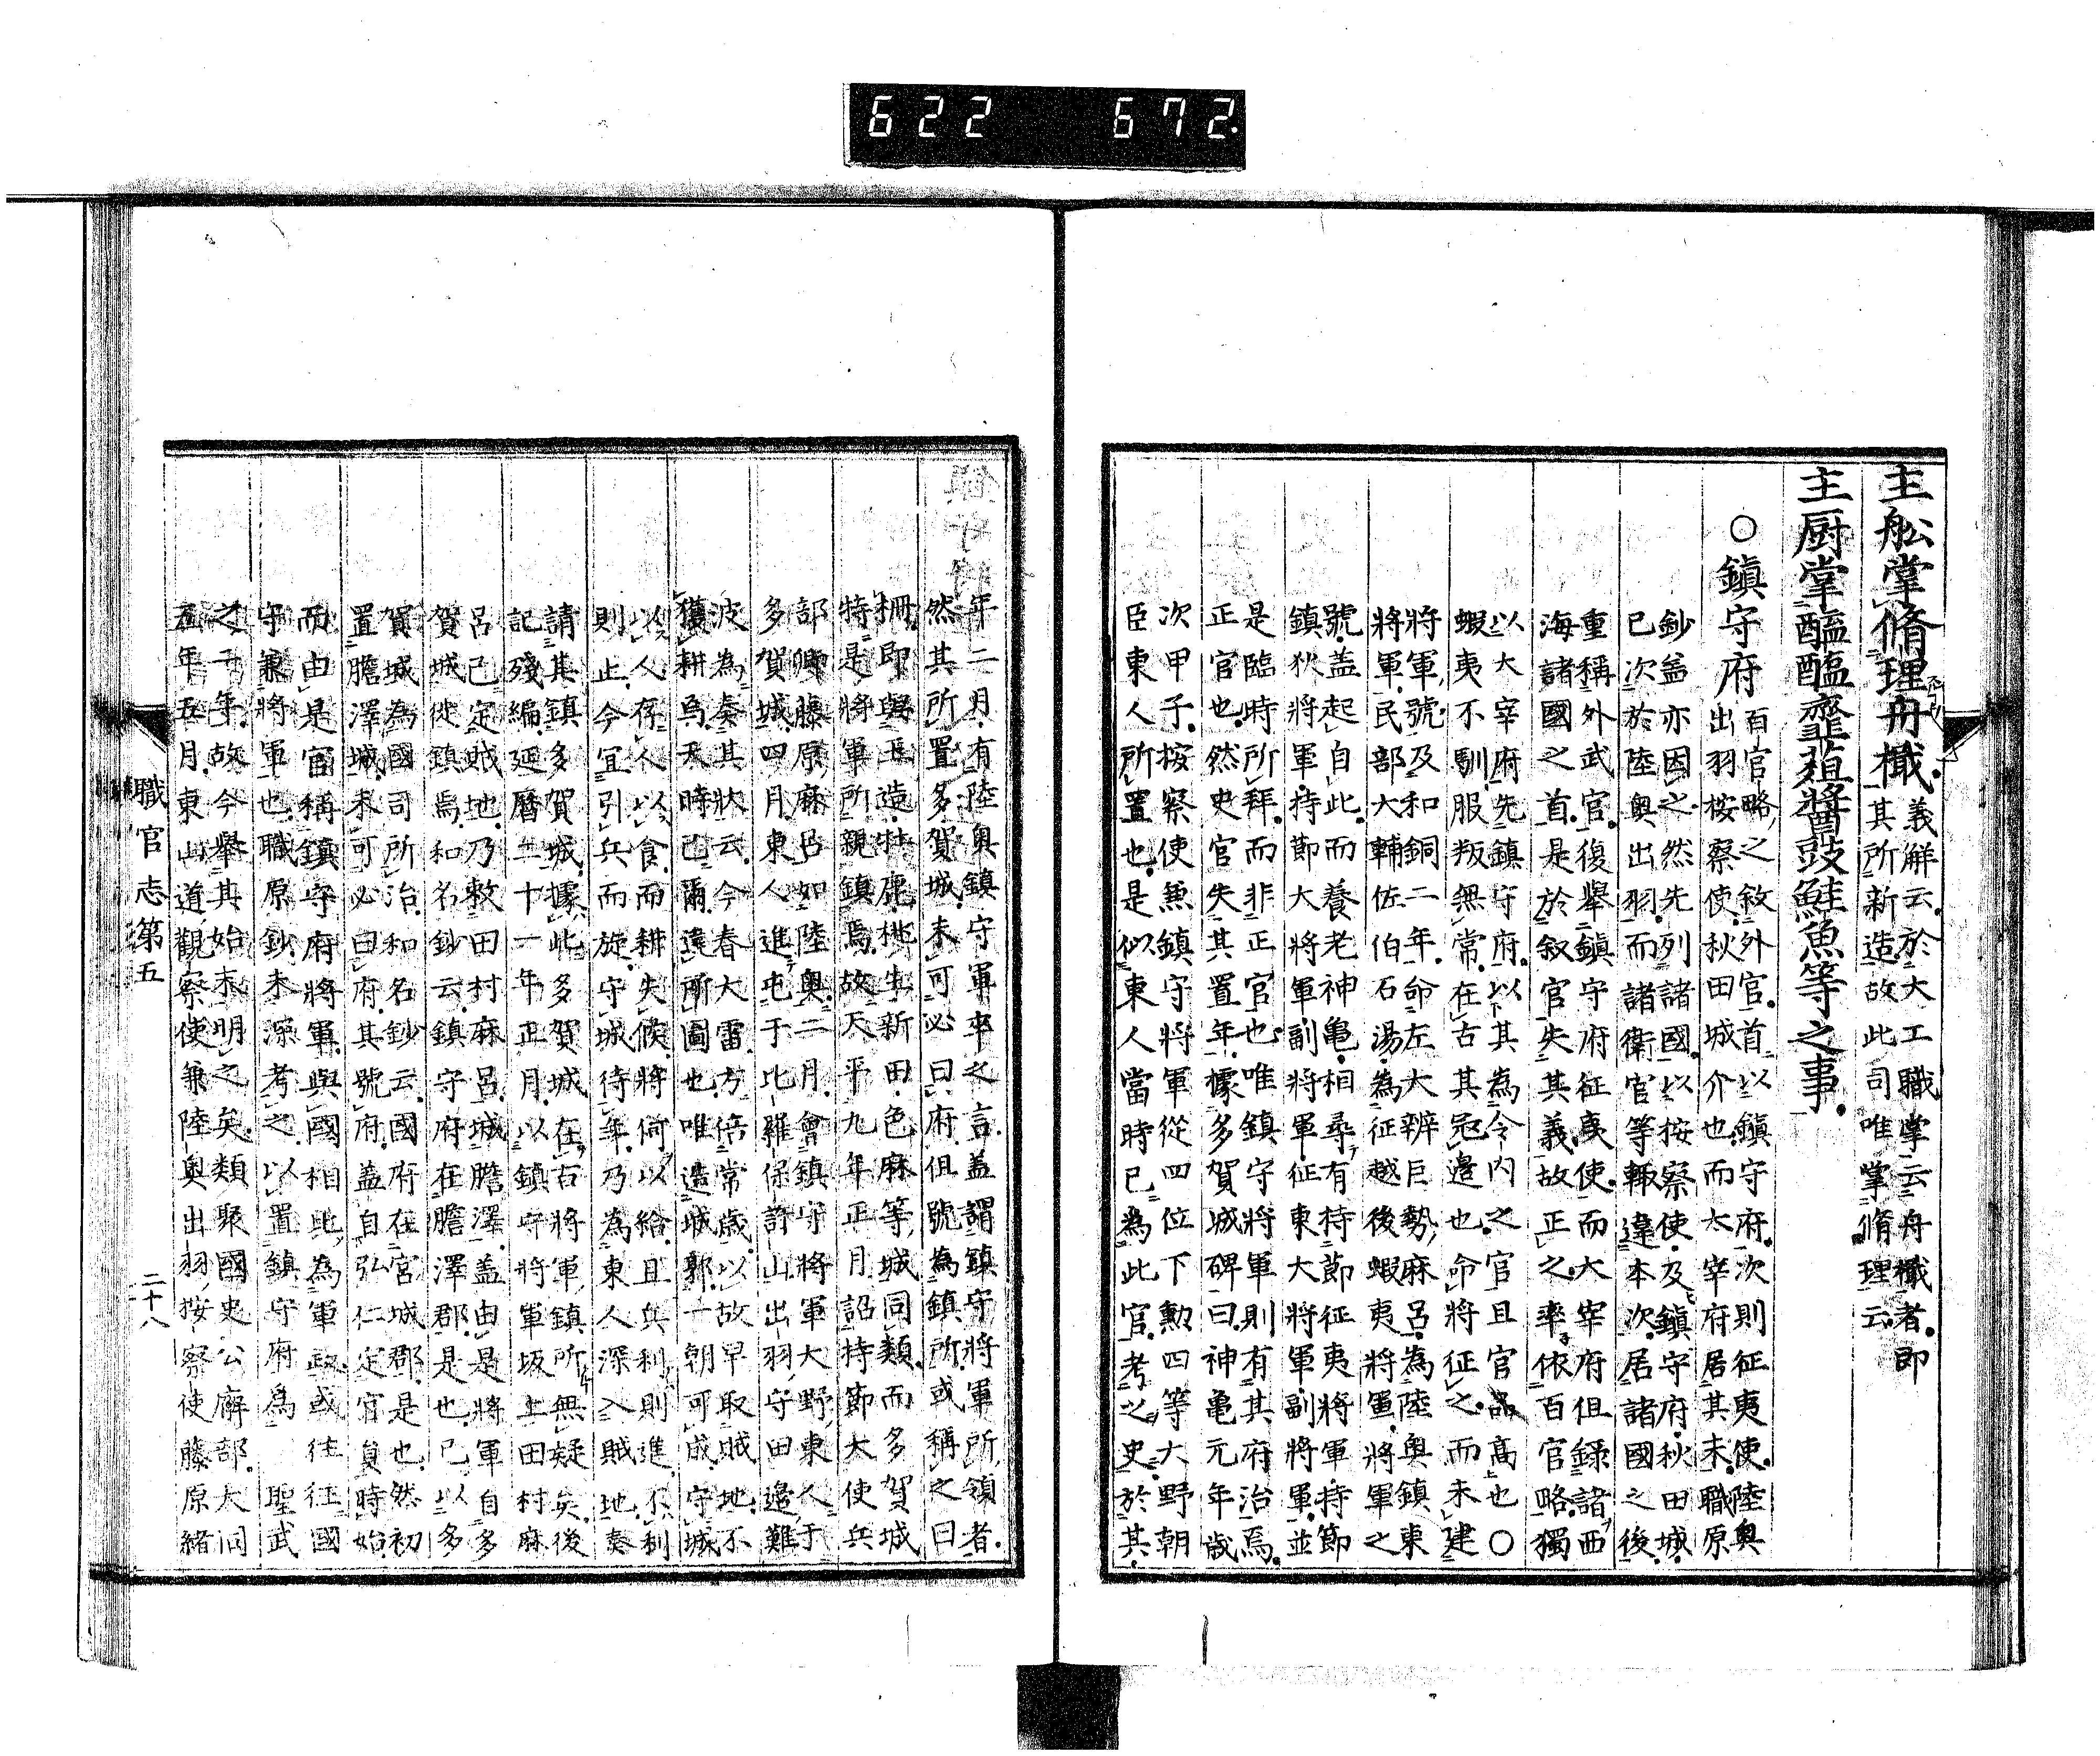 622 672.
主舩掌脩理舟檝
義解云於大工職掌云舟檝者即
其所新造故此司唯掌脩理云
主厨掌醯醢韲葅醬豉鮭魚等之事
○鎮守府
百官略之敘外官首以鎮守府次則征夷使陸奥
出羽按察使秋田城介也而太宰府居其末職原
鈔盖亦因之然先列諸國以按察使及鎮守府秋田城
已次於陸奥出羽而諸衛官等輙違本次居諸國之後
重稱外武官復舉鎮守府征夷使而大宰府但録諸西
海諸國之首是於叙官失其義故正之率依百官略獨
以大宰府先鎮守府以其為令内之官且官品高也○
蝦夷不馴服叛無常在古其冦邊也命將征之而未建
將軍號及和銅二年命左大辨巨勢麻呂為陸奥鎮東
將軍民部大輔佐伯石湯為征越後蝦夷將軍將軍之
號盖起自此而養老神亀相尋有持節征夷將軍持節
鎮狄將軍持節大將軍副將軍征東大將軍副將軍並
是臨時所拜而非正官也唯鎮守將軍則有其府治焉
正官也然史官失其置年據多賀城碑曰神亀元年歳
次甲子按察使兼鎮守將軍從四位下勲四等大野朝
臣東人所置也是似東人當時已為此官考之史於其
年二月有陸奥鎮守軍卒之言盖謂鎮守將軍所領者
然其所置多賀城未可必曰府但號為鎮所或稱之曰
柵即與玉造牡鹿桃生新田色麻等城同類而多賀城
特是將軍所親鎮焉故天平九年正月詔持節大使兵
部卿藤原麻呂如陸奥二月會鎮守將軍大野東人于
多賀城四月東人進屯于比羅保許山出羽守田邉難
波為奏其狀云今春大雷方倍常歳以故早取賊地不
獲耕烏天時已爾違所圖也唯造城郭一朝可成守城
以人存人以食而耕失候將何以給且兵利則進不利
則止今宜引兵而旋守城待年乃為東人深入賊地奏
請其鎮多賀城據此多賀城在古將軍鎮所無疑矣後
記殘編延暦二十一年正月以鎮守將軍坂上田村麻
呂已定賊地乃敕田村麻呂城膽澤盖由是將軍自多
賀城徙鎮焉和名鈔云鎮守府在膽澤郡是也已以多
賀城為國司所治和名鈔云國府在宮城郡是也然初
置膽澤城未可必曰府其號府盖自弘仁定官員時始
而由是官稱鎮守府將軍與國相比為軍政或往征國
守兼將軍也職原鈔未深考之以置鎮守府為聖武
之一年故今舉其始末明之矣類聚國史公廨部大同
五年五月東山道觀察使兼陸奥出羽按察使藤原緒
職官志第五
二十八